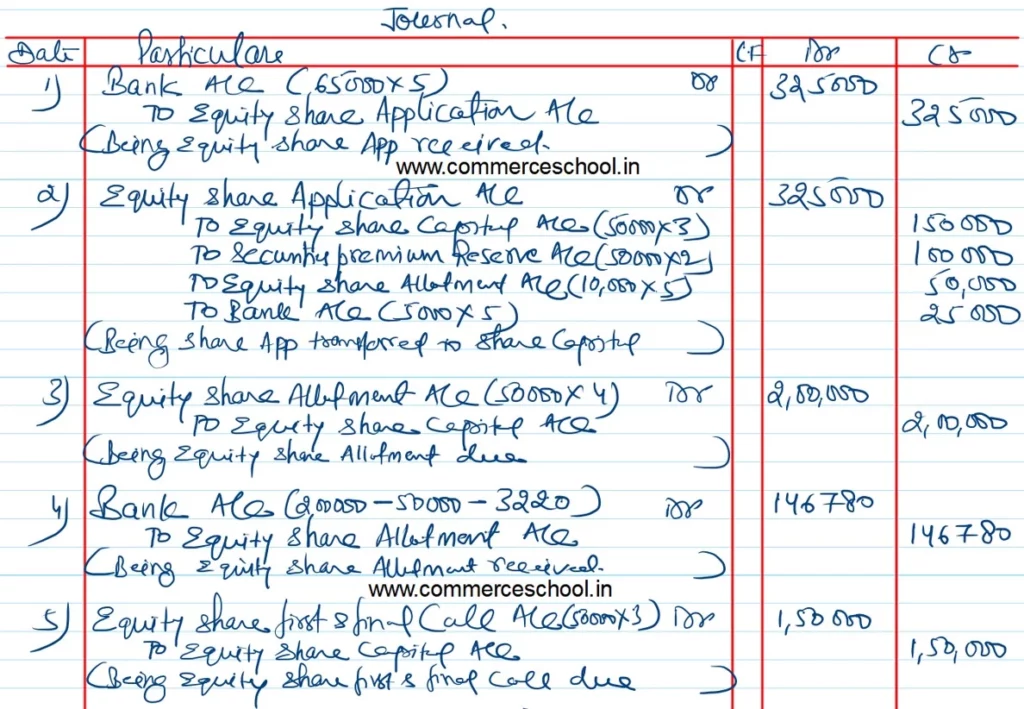 Journal.
Date Particulars CF Dr Cr
1) Bank A/c (65000×5) Dr 325000
To Equity Share Application A/c 325000
(Being Equity share App received. )
www.commerceschool.in
2) Equity Share Application A/c Dr 325000
To Equity Share Capital A/c (50000×3) 150000
To Security premium Reserve A/c (50000×2) 100000
To Equity Share Allotment A/c (10,000×5) 50,000
To Bank A/c (5000×5) 25000
(Being Share App transferred to Share Capital )
3) Equity Share Allotment A/c (50000×4) Dr 2,00,000
To Equity Share Capital A/c 2,00,000
(Being Equity Share Allotment due )
4) Bank A/c (200000-50000-3220) Dr 146780
To Equity Share Allotment A/c 146780
(Being Equity Share Allotment received. )
www.commerceschool.in
5) Equity Share first & final Call A/c (50000×3) Dr 1,50,000
To Equity Share Capital A/c 1,50,000
(Being Equity Share first & final Call due )